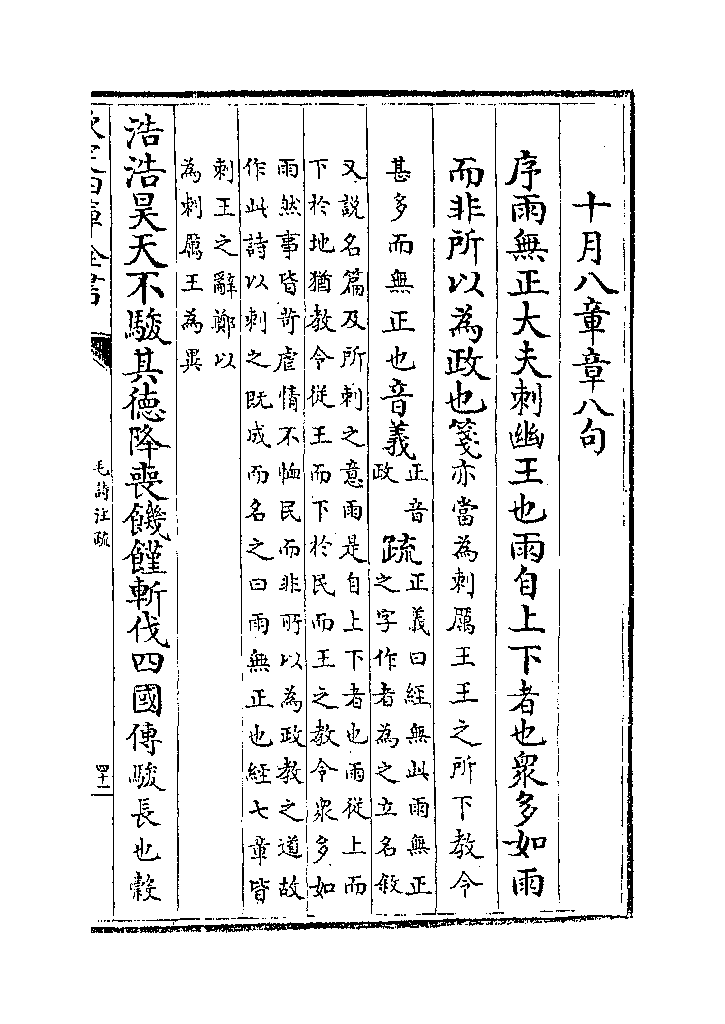 十月八章章八句
序雨無正大夫刺幽王也雨自上下者也衆多如雨
而非所以為政也箋亦當為刺厲王王之所下教令
甚多而無正也音義正音政疏正義曰經無此雨無正
之字作者為之立名叙
又說名篇及所刺之意雨是自上下者也雨從上而
下於地猶教令從王而下於民而王之教令衆多如
雨然事皆苛虐情不恤民而非所以為政教之道故
作此詩以刺之既成而名之曰雨無正也經七章皆
刺王之辭鄭以
為刺厲王為異
浩浩昊天不駿其徳降喪饑饉斬伐四國傳駿長也穀
欽定四庫全書
毛詩注疏